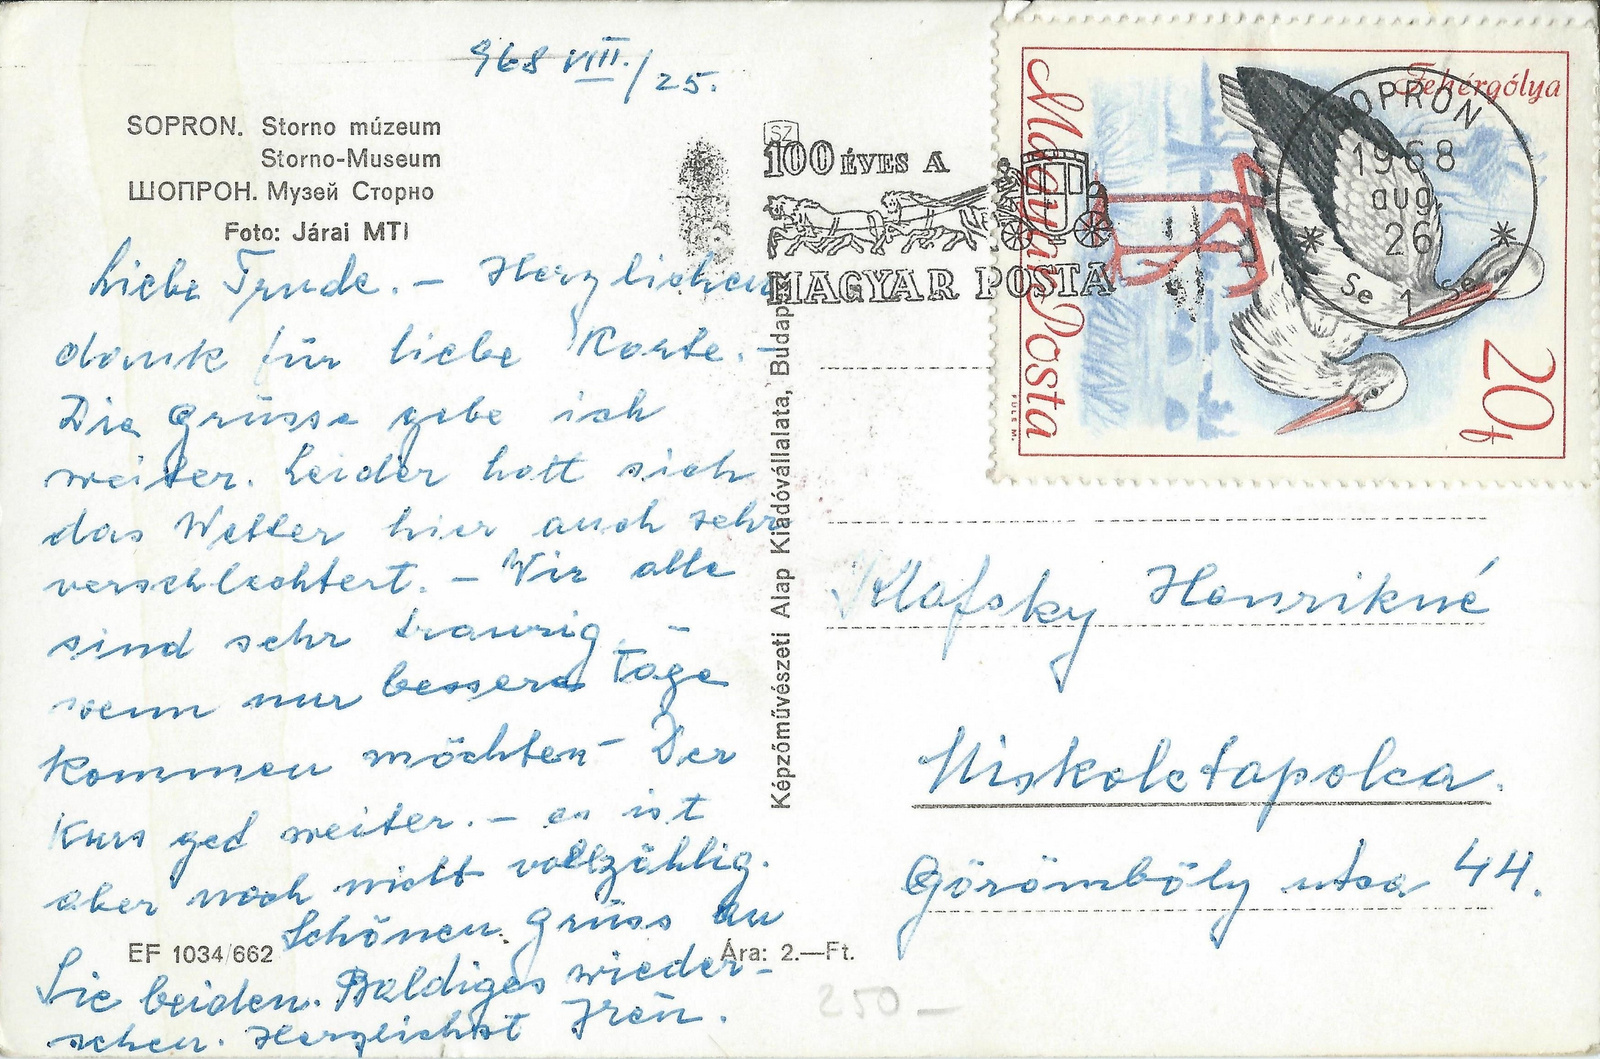 968 VIII./25.
SOPRON. Storno múzeum
Storno-Museum
ШОПРОН. Музей Сторно
Foto: Járai MTI
Liebe Trude. – Herzlichen
dank für liebe Karte. –
Die Grüsse gebe ich
weiter. Leider hatt sich
das Wetter hier auch sehr
verschlechtert. – Wir alle
sind sehr traurig, –
wenn nur bessere Tage
kommen möchten – Der
Kurs get weiter. – es ist
aber noch nicht vollzählig.
Schönen Grüss an
Sie beiden. Baldiges wieder-
sehen. Herzlichst Irén.
EF 1034/662
Ára: 2.—Ft.
250 –
Képzőművészeti Alap Kiadóvállalata, Budapest
SZ
100 ÉVES A
MAGYAR POSTA
Magyar Posta
Fehérgólya
20f
FÜLE M.
SOPRON
1968
aug.
26
Se 1 Se
Klafsky Henrikné
Miskolctapolca.
Görömböly utca 44.